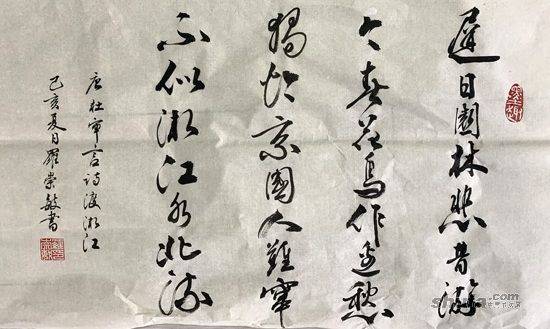 遲日園林悲昔游
今春花鳥作邊愁
獨憐京國人難竄
不似湘江水北流
唐杜審言詩渡湘江
己亥夏日羅崇敏書